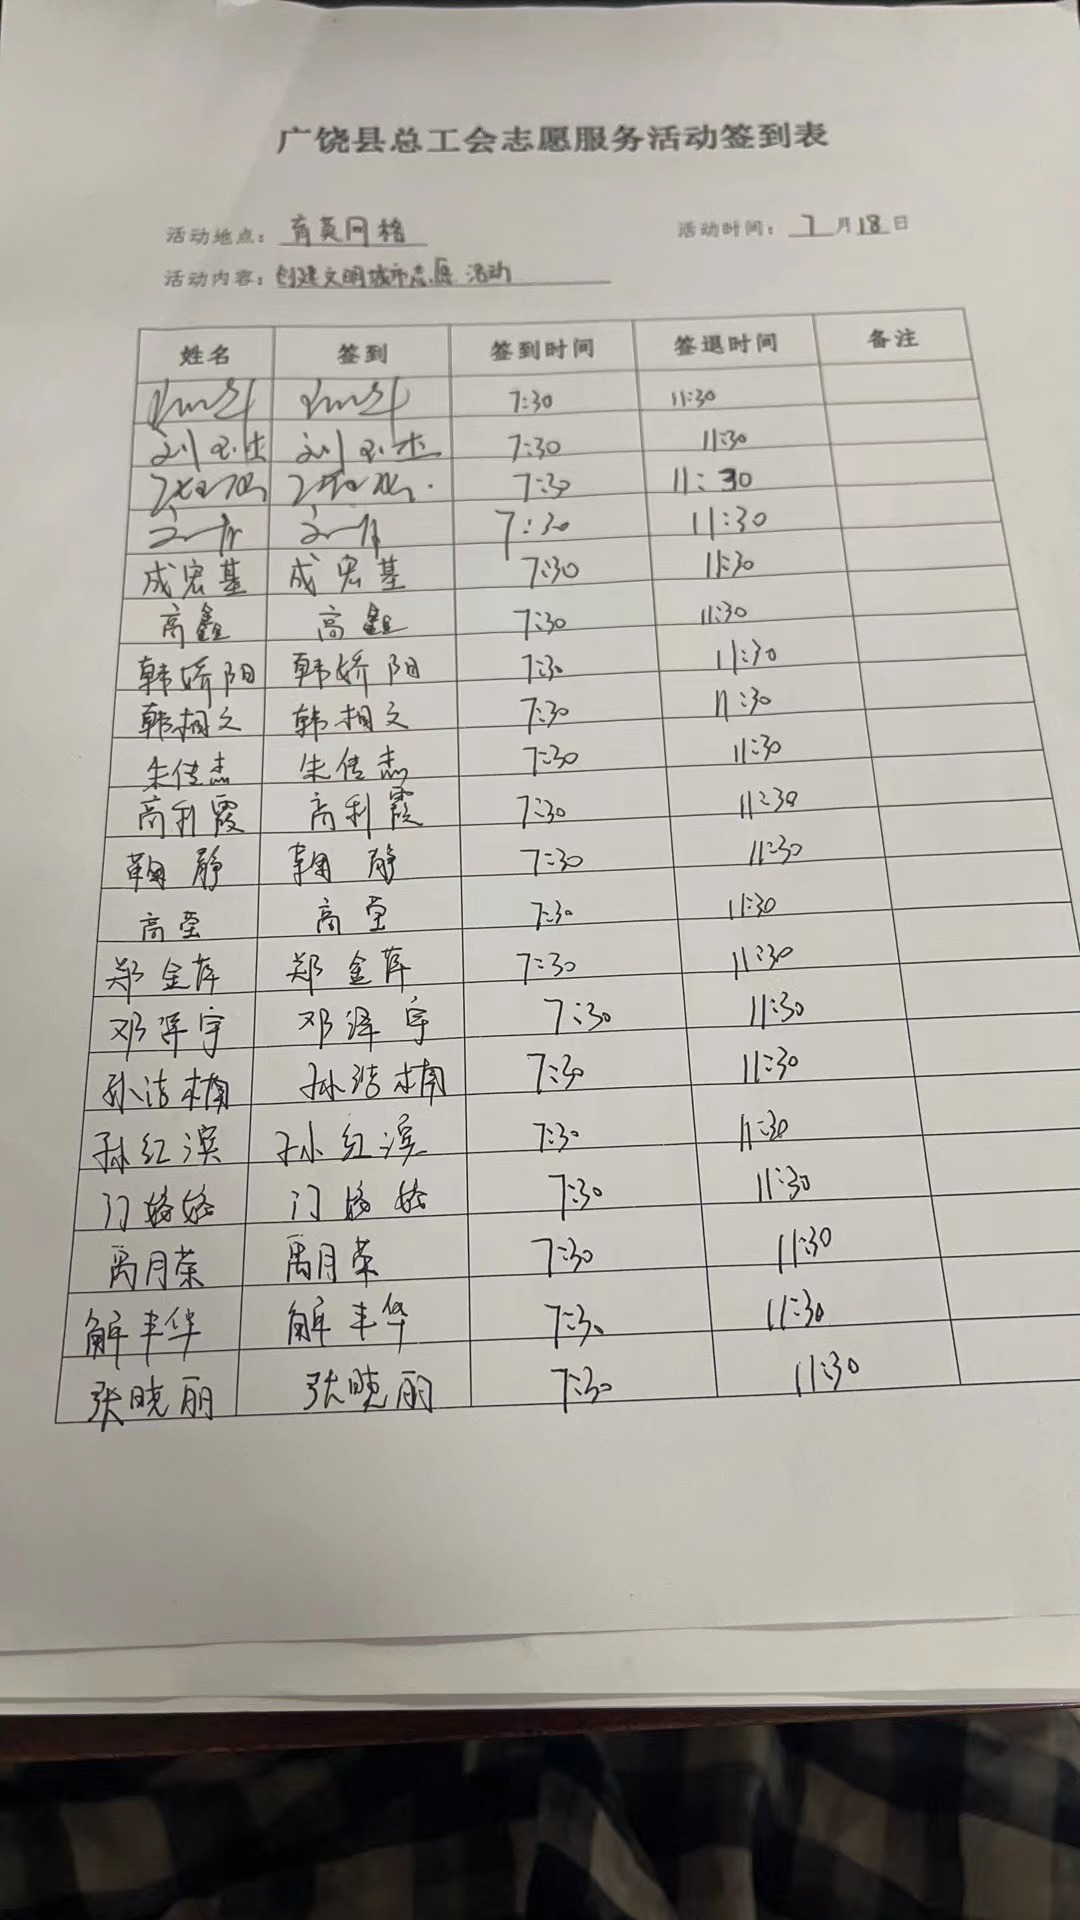 广饶县总工会志愿服务活动签到表
活动地点：育英网格 活动时间：7月18日
活动内容：创建文明城市志愿活动
姓名 签到 签到时间 签退时间 备注
7:30 11:30
刘 刘 7:30 11:30
7:30 11:30
7:30 11:30
成宏基 成宏基 7:30 11:30
高鑫 高鑫 7:30 11:30
韩娇阳 韩娇阳 7:30 11:30
韩相文 韩相文 7:30 11:30
朱传杰 朱传杰 7:30 11:30
高利霞 高利霞 7:30 11:30
静 静 7:30 11:30
高莹 高莹 7:30 11:30
郑金萍 郑金萍 7:30 11:30
邓泽宇 邓泽宇 7:30 11:30
孙洁楠 孙洁楠 7:30 11:30
孙红滨 孙红滨 7:30 11:30
门 门 7:30 11:30
禹月荣 禹月荣 7:30 11:30
解丰华 解丰华 7:30 11:30
张晓丽 张晓丽 7:30 11:30